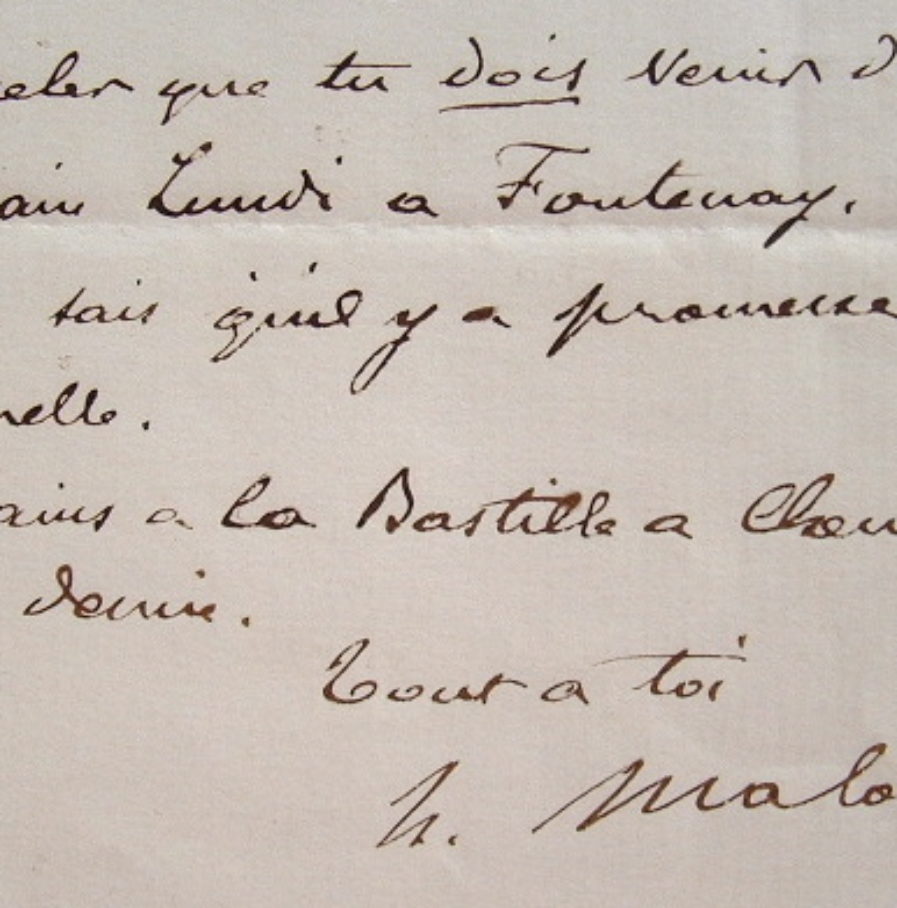 eler que tu dois venir d
ain Lundi a Fontenay.
sais qu'il y a promesse
nelle.
ains a la Bastille a
demie.
Tout a toi
h. Malo